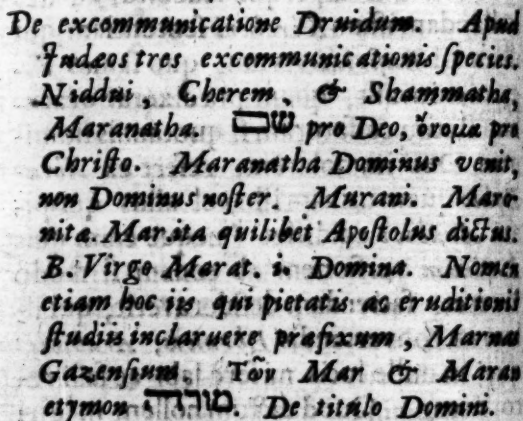 De excommunicatione Druidum. Apud
Judæos tres excommunicationis ſpecies.
Niddui, Cherem, & Shammatha,
Maranatha. שם pro Deo, ὄνομα pro
Chriſto. Maranatha Dominus venit,
non Dominus noſter. Murani. Maro-
nitæ. Mar.ita quilibet Apoſtolus dictus.
B. Virgo Marat. i. Domina. Nomen
etiam hoc iis qui pietatis ac eruditionis
ſtudiis inclaruere præfixum, Marnas
Gazenſium. Τῶν Mar & Maran
etymon מורה. De titulo Domini.